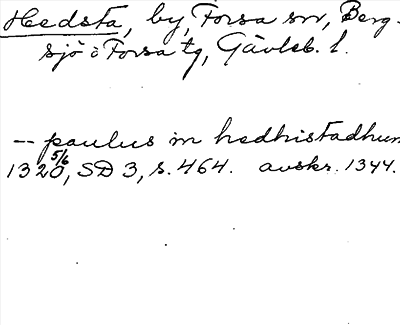 Hedsta, by, Forsa sn, Berg-
sjö o Forsa tg, Gävleb. l.
-- paulus in hedhistadhum
1320 5/6, SD 3, s. 464. avskr. 1344.